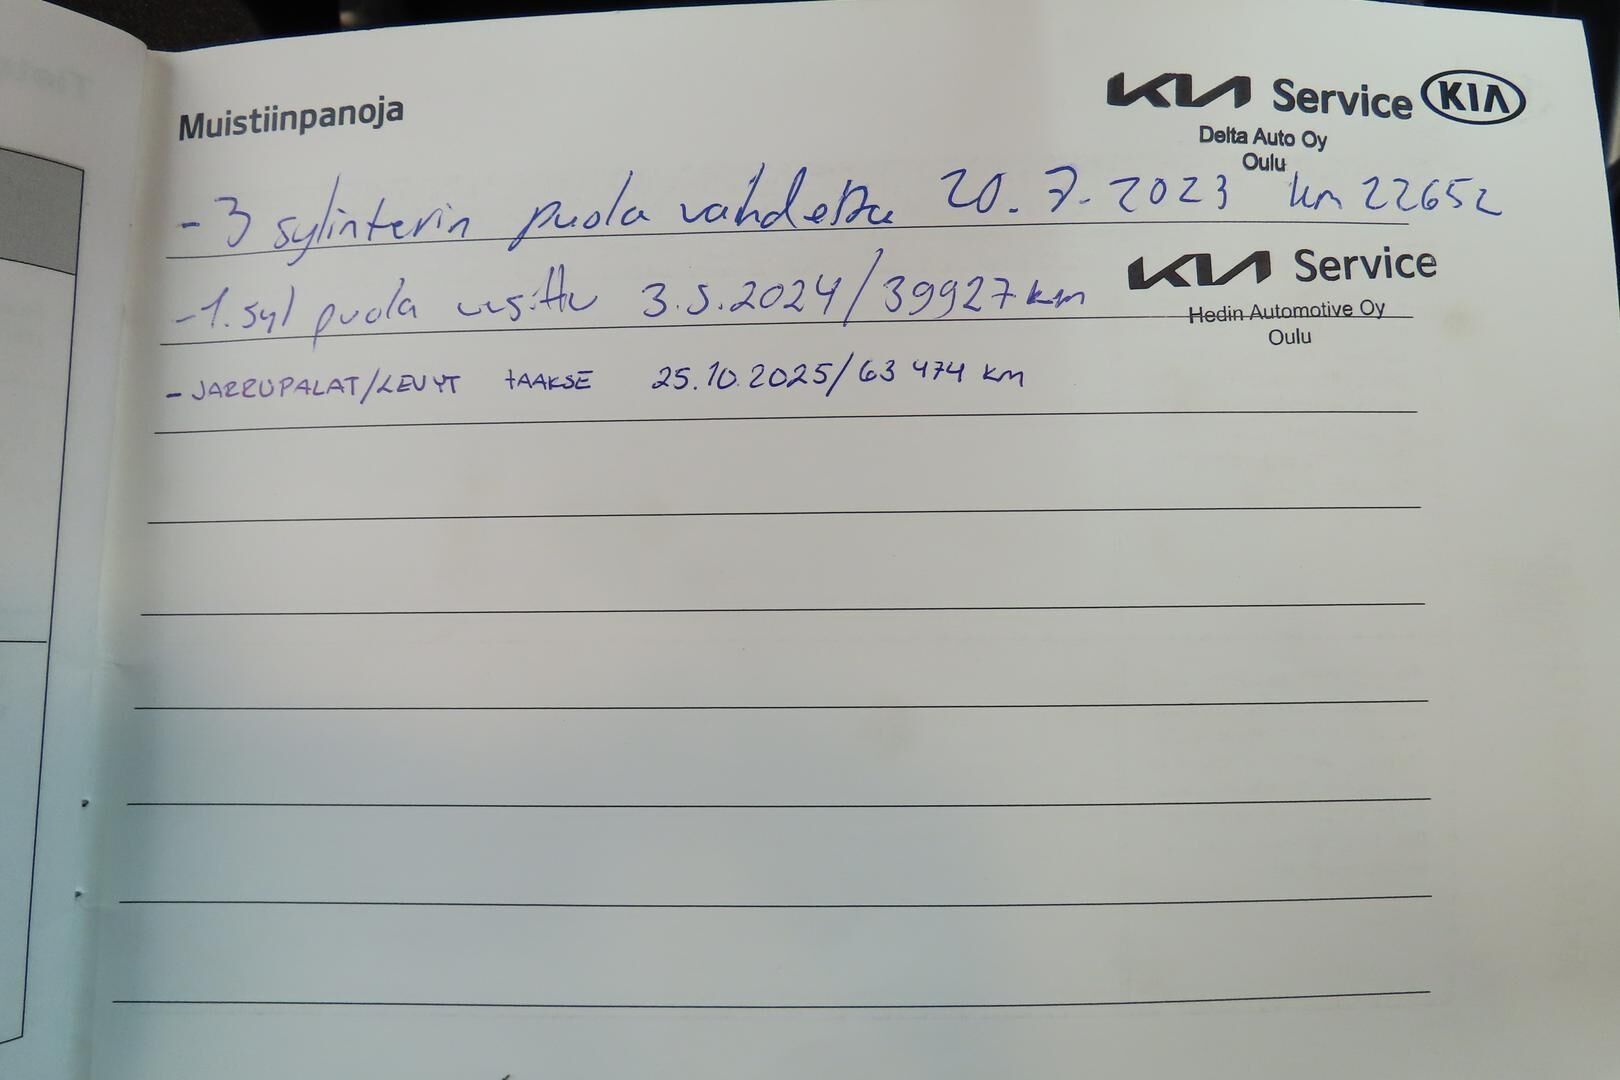 Muistiinpanoja
KIA Service KIA
Delta Auto Oy
Oulu
- 3 sylinterin puola vaihdettu 20.7.2023 km 22652
KIA Service
- 1. syl puola uusittu 3.5.2024/39927 km
Hedin Automotive Oy
Oulu
- JARRUPALAT/LEVYT tAAKSE 25.10.2025/63 474 km